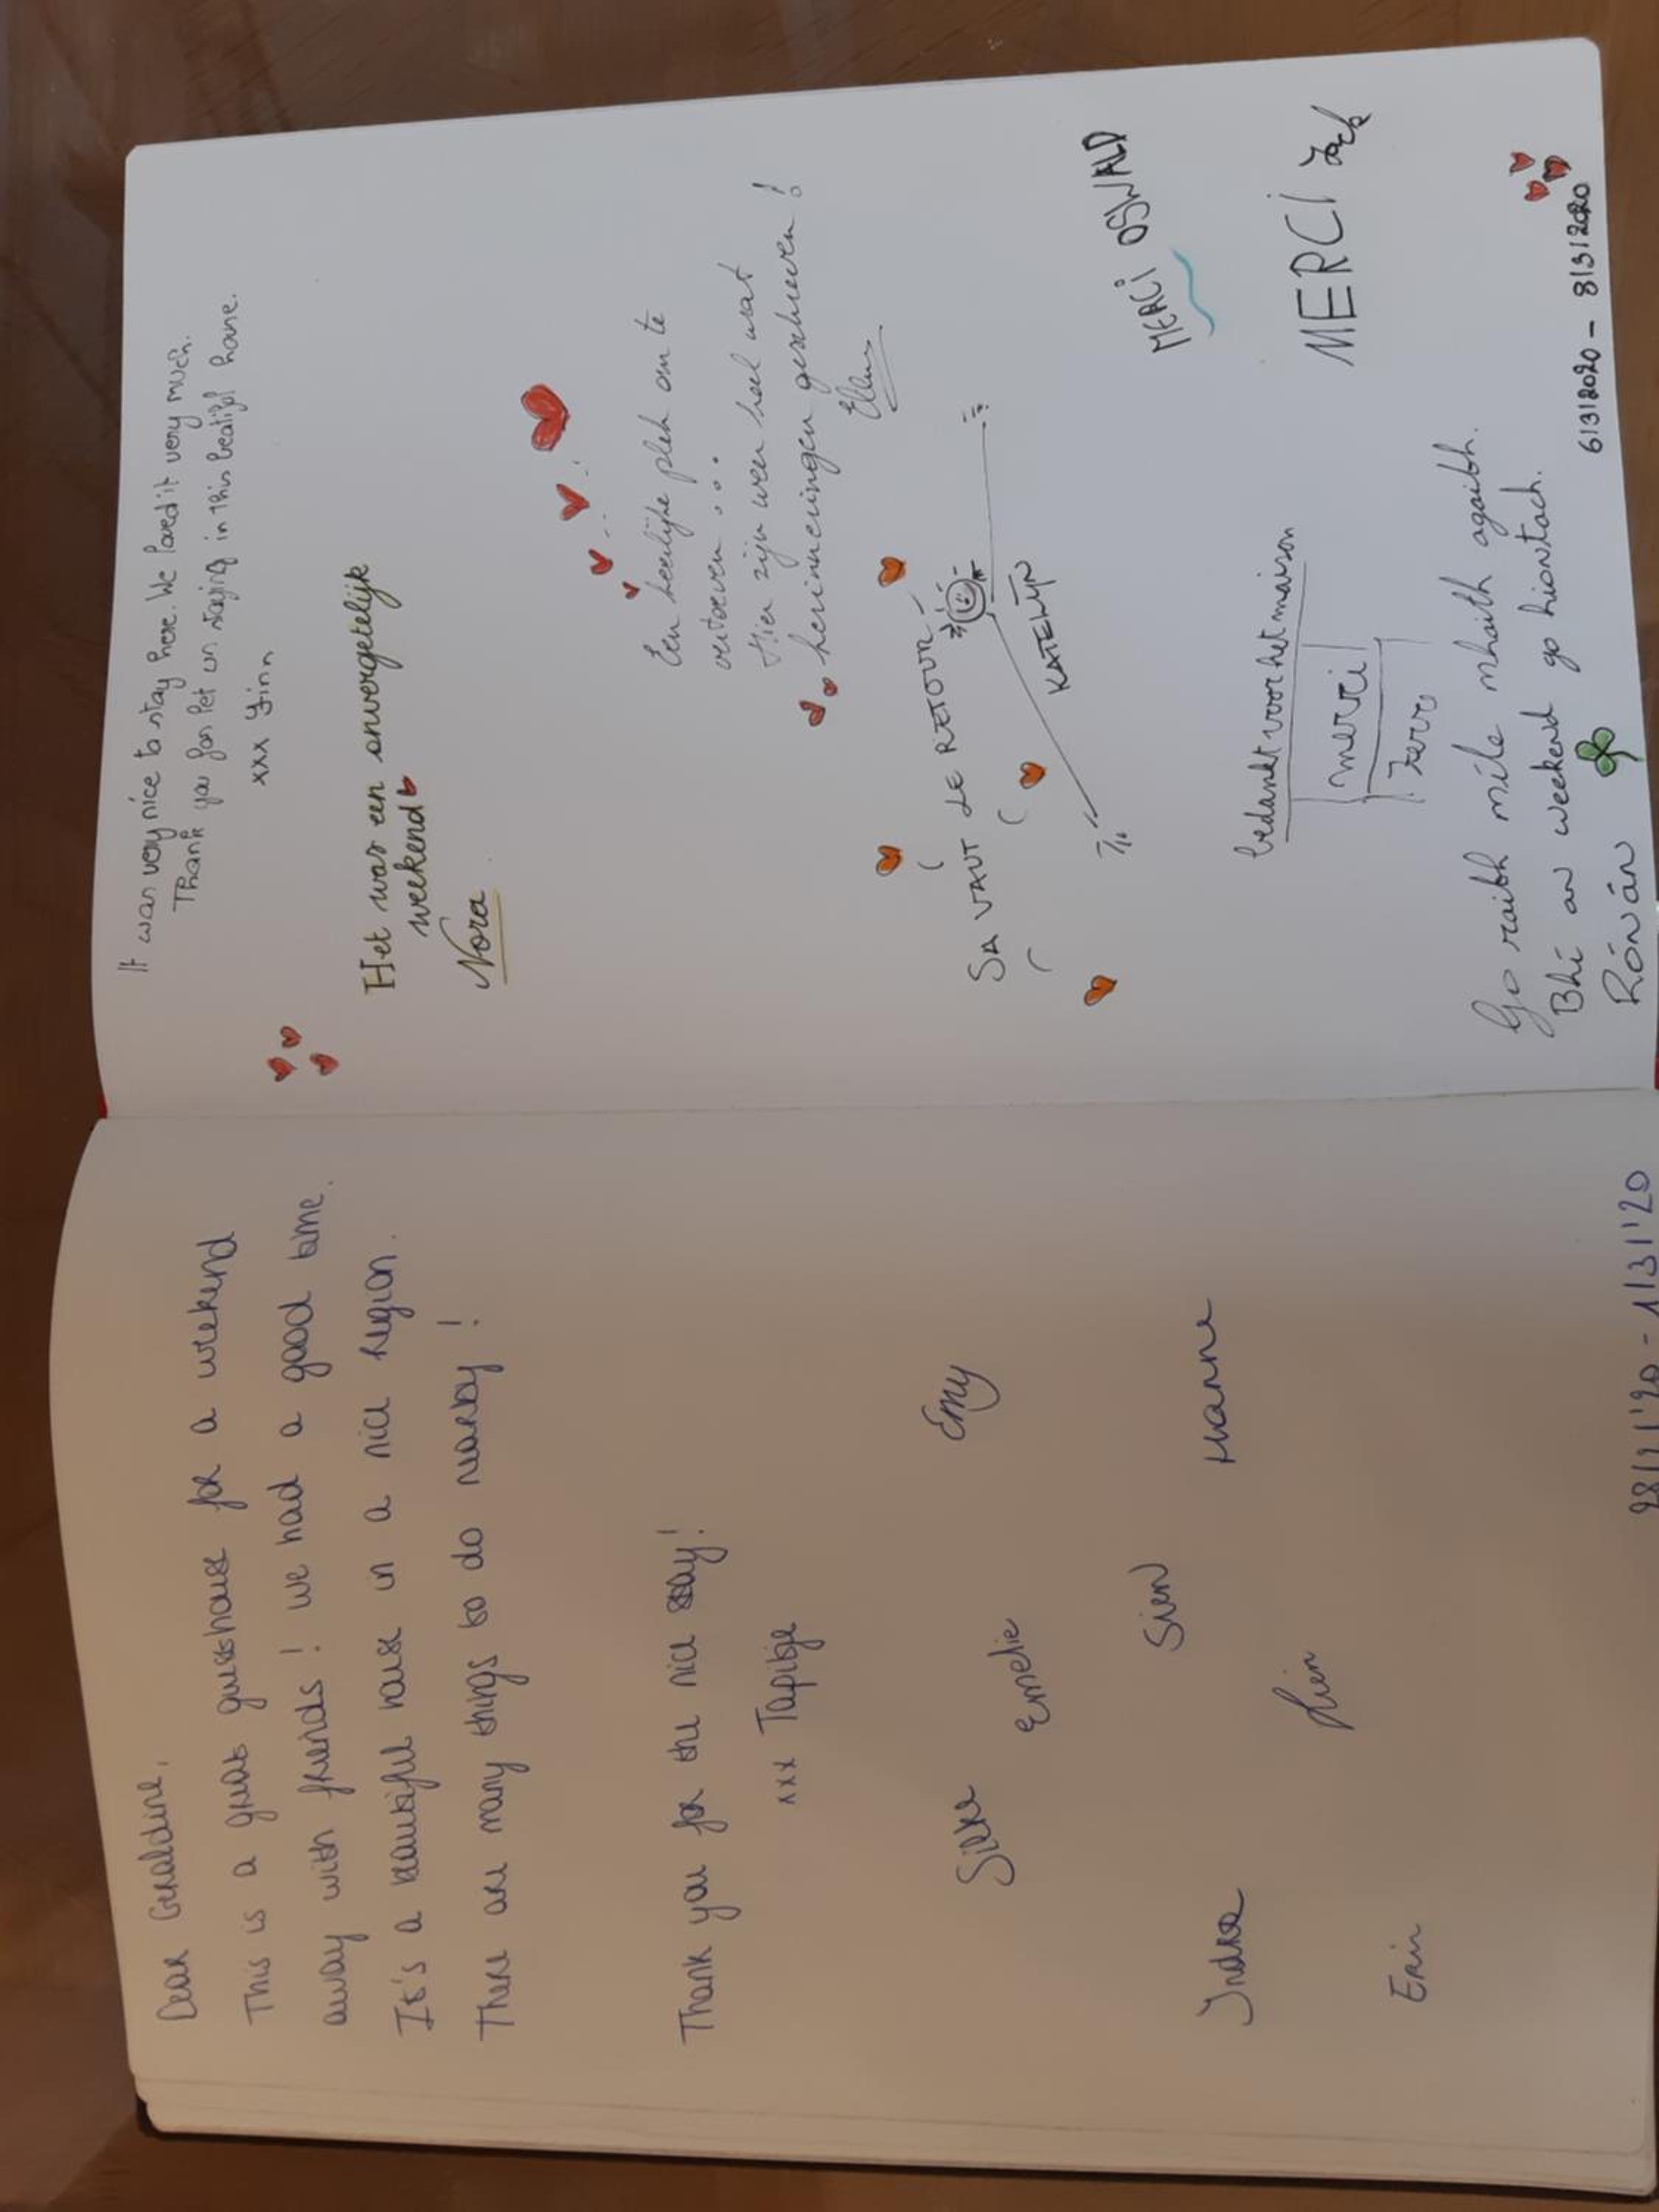 Dear Geraldine,
This is a great guesthouse for a weekend
away with friends! We had a good time.
It's a beautiful house in a nice region.
There are many things to do nearby!
Thank you for the nice stay!
xxx Tapitje
Emy
Silke
Emelie
Sien
Hanne
Indra
Erin
28/11'20 - 1/3/'20
It was very nice to stay here. We loved it very much.
Thank you for let us staying in this beatifol hone.
xxx Finn
Het was een onvergetelijk
weekend
Nora
Een heerlijke plek om te
vertoeven...
Hier zijn weer heel wat
herinneringen geschreven!
Ellen
SA VAUT LE RETOUR
KATELIJN
MERCI OSWALD
bedankt voor het maison
merci
MERCI
Go raibh míle mhaith agaibh.
Bhí an weekend go hiontach.
Rónán
6/3/2020 - 8/3/2020